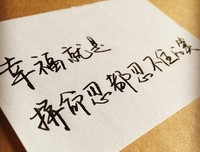 幸福就是
拼命忍都忍不住的笑